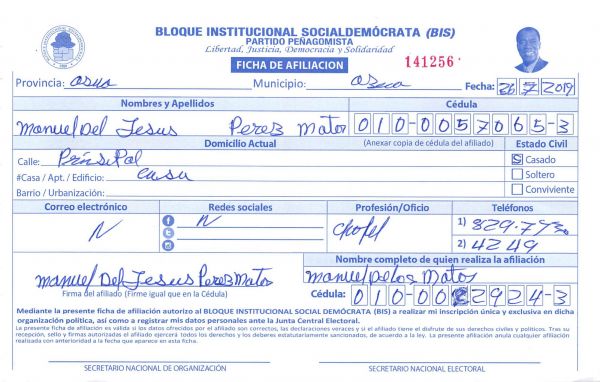 BLOQUE INSTITUCIONAL SOCIALDEMÓCRATA (BIS)
PARTIDO PEÑAGOMISTA
Libertad, Justicia, Democracia y Solidaridad
FICHA DE AFILIACION
141256
Provincia: Azua Municipio: Azua Fecha: 26 7 2019
Nombres y Apellidos Cédula
Manuel Del Jesus Perez Matos 010-0057065-3
Domicilio Actual (Anexar copia de cédula del afiliado) Estado Civil
Calle: Prinsipal S Casado
#Casa / Apt. / Edificio: casa Soltero
Barrio / Urbanización: Conviviente
Correo electrónico Redes sociales Profesión/Oficio Teléfonos
N N chofel 1) 829-773
2) 4249
Nombre completo de quien realiza la afiliación
Manuel Del Jesus Perez Matos Manuel Matos
Firma del afiliado (Firme igual que en la Cédula) Cédula: 010-00 2924-3
Mediante la presente ficha de afiliación autorizo al BLOQUE INSTITUCIONAL SOCIAL DEMÓCRATA (BIS) a realizar mi inscripción única y exclusiva en dicha
organización política, así como a registrar mis datos personales ante la Junta Central Electoral.
La presente ficha de afiliación es válida si los datos ofrecidos por el afiliado son correctos, las declaraciones veraces y si el afiliado tiene el disfrute de sus derechos civiles y políticos. Tras su
recepción, sello y firmas autorizadas el afiliado ejercerá todos los derechos y los deberes estatutariamente sancionados, de acuerdo a la ley. La presente afiliación anula cualquier afiliación
realizada con anterioridad a la fecha que aparece en esta ficha.
SECRETARIO NACIONAL DE ORGANIZACIÓN SECRETARIO NACIONAL ELECTORAL